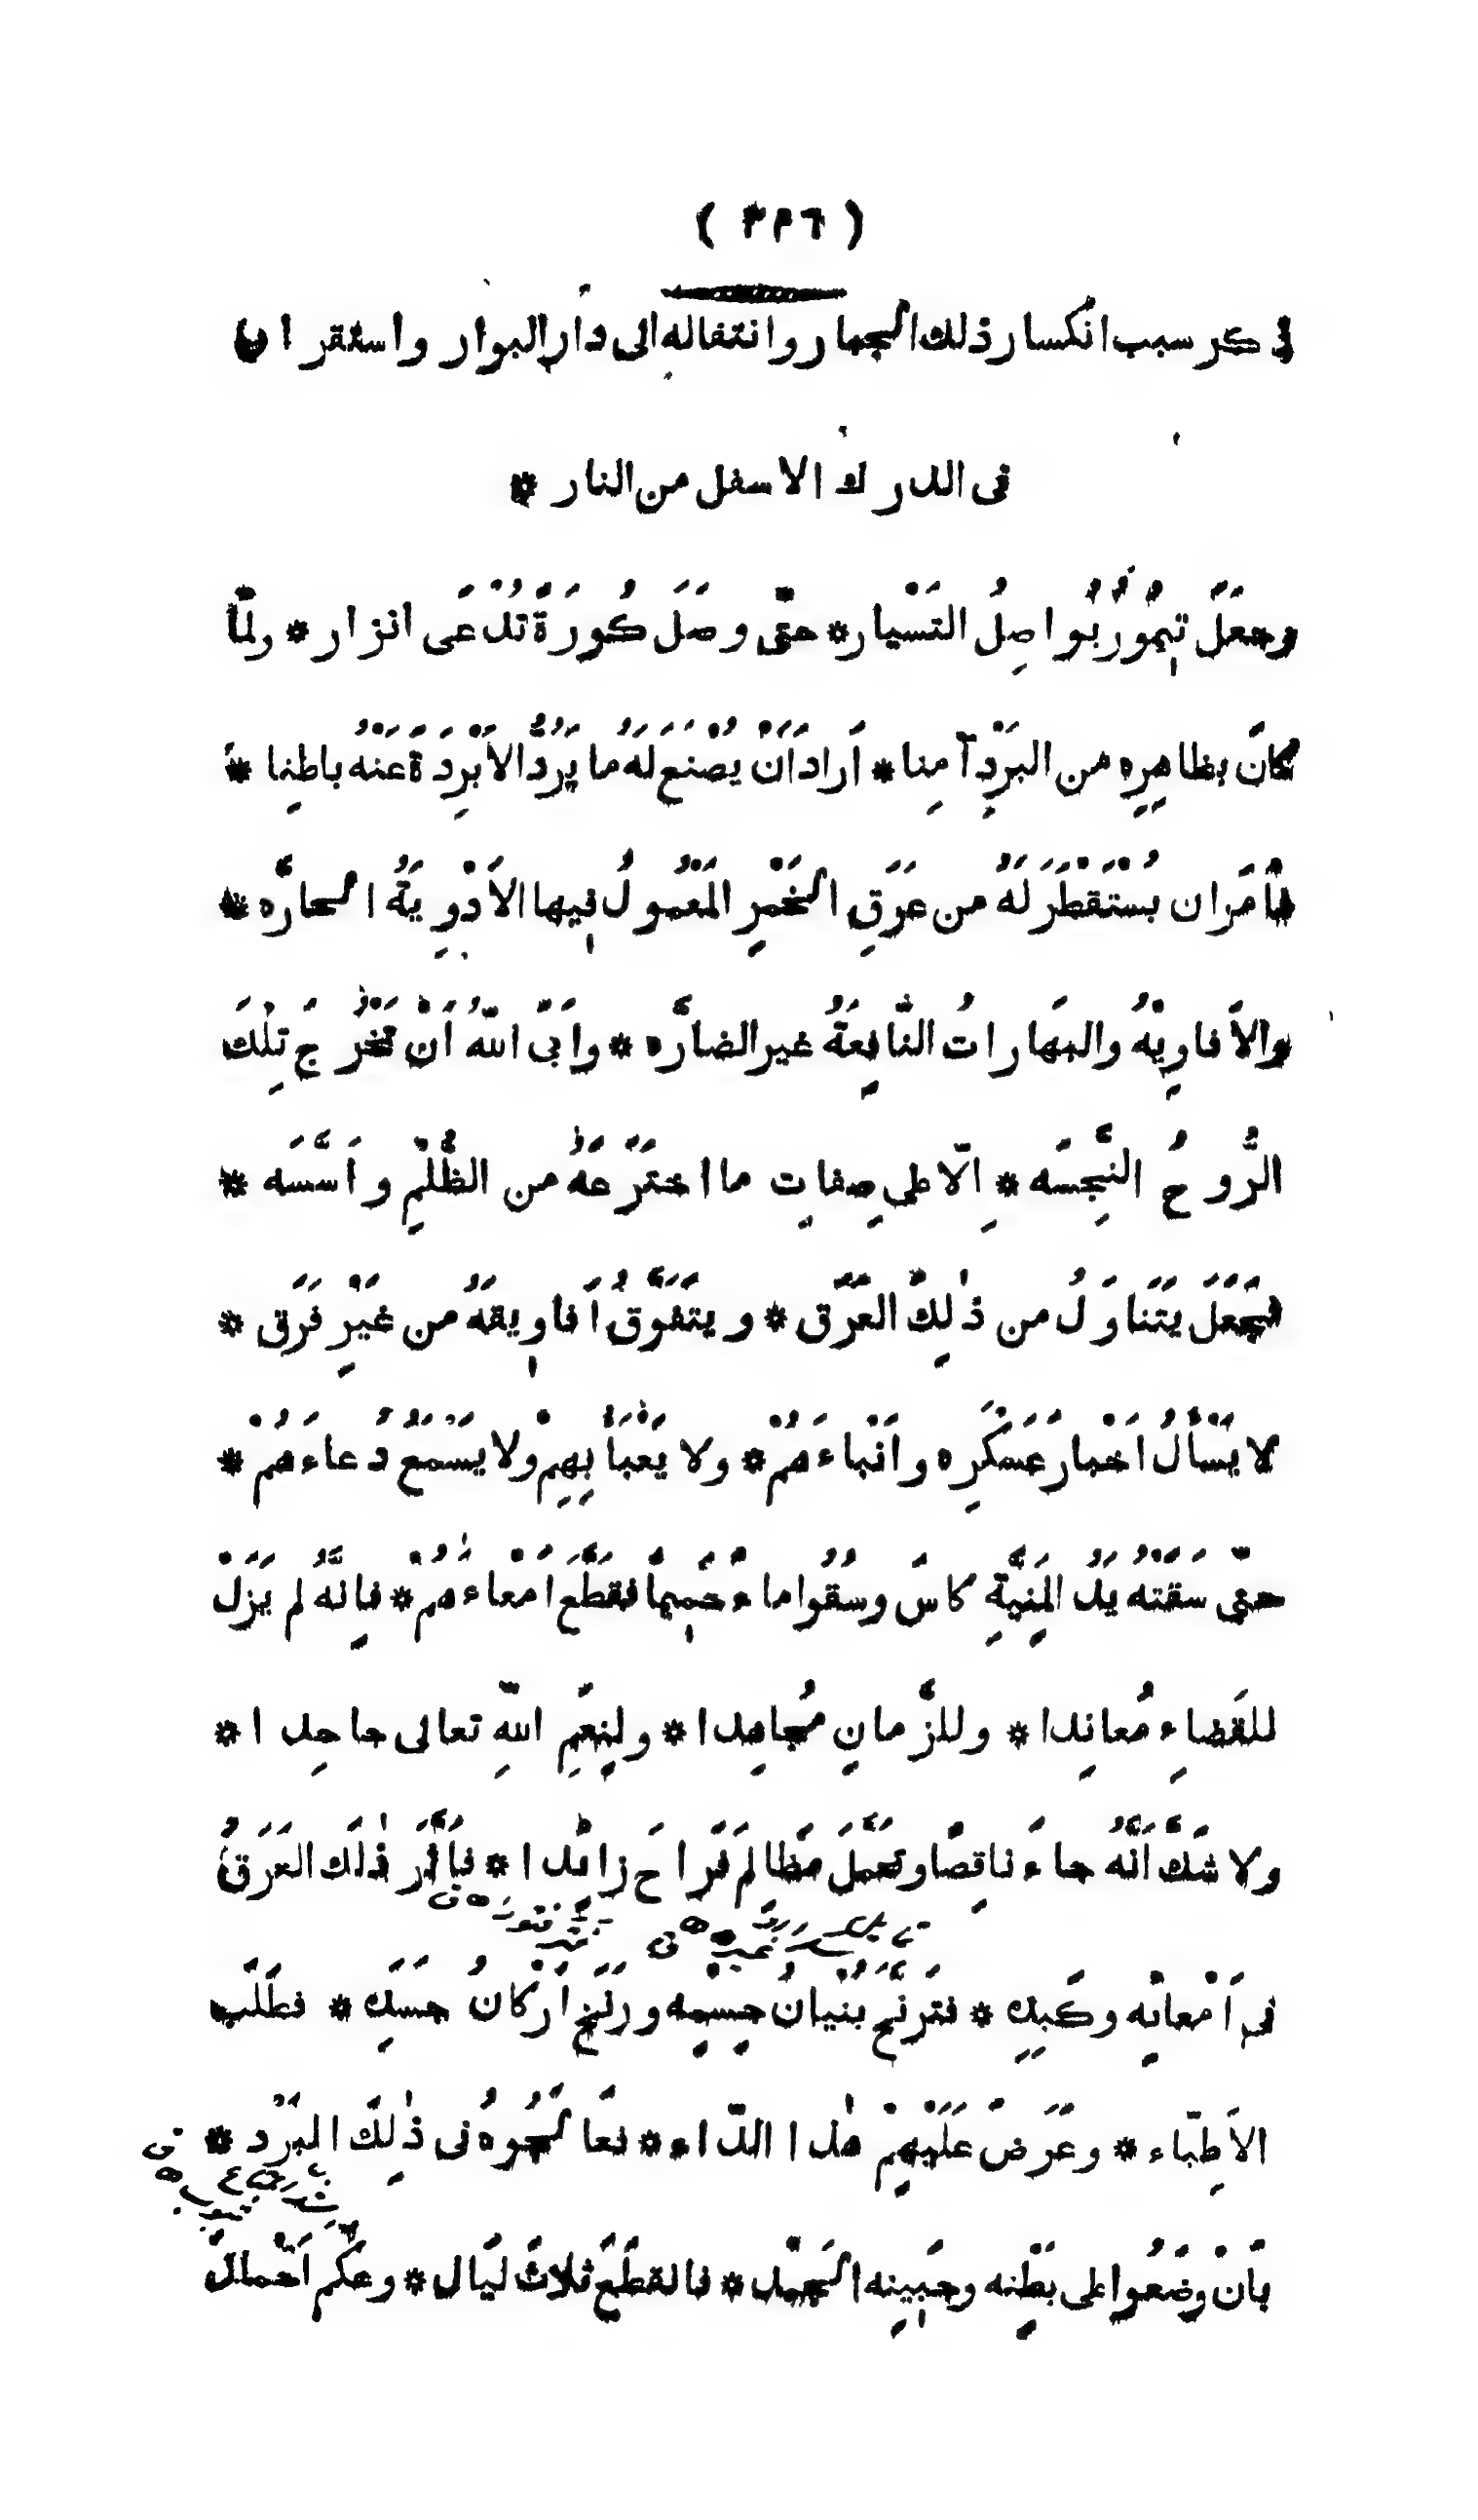 ( ٣٢٦ )
ذكر سبب انكسار ذلك الجبار وانتقاله الى دار البوار واستقراره
فى الدرك الاسفل من النار *
وجعَلَ تيمُورُ يُواصِلُ التَسْيار * حتّى وصَلَ كُورَةً تُدْعَى اترار * ولمّا
كانَ بظاهِرِه من البَرْدِ آمِنا * اَرادَ اَنْ يُصْنَعَ لَهُ ما يَرُدُّ الاَبْرِدَةَ عَنْهُ باطِنا *
فأمَرَ ان يُسْتَقْطَرَ لَهُ من عَرَقِ الخَمْرِ المَعْمُولُ فيها الاَدْوِيَةُ الحارَّه *
والاَفاوِيْهُ والبَهاراتُ النّافِعَةُ غير الضارَّه * واَبَى اللهُ اَنْ تَخْرُجَ تِلْكَ
الرُّوحُ النَّجِسَه * اِلّا على صِفاتِ ما اختَرَعَهُ من الظُّلْمِ واَسَّسَه *
فجَعَلَ يَتَناوَلُ من ذٰلِكَ العَرَق * ويتَفَوَّقُ اَفاوِيقَهُ من غَيْرِ فَرَق *
لا يَسْأَلُ اَخْبارَ عَسْكَرِه واَنْباءَهُمْ * ولا يَعْبَأُ بِهِمْ ولا يَسْمَعُ دُعاءَهُمْ *
حتّى سَقَتْهُ يَدُ المَنِيَّةِ كاسَ وسُقُوا ماءً حَمِيماً فقَطَّعَ اَمْعاءَهُمْ * فاِنَّهُ لم يَزَلْ
للقَضاءِ مُعانِدا * وللزَّمانِ مُجاهِدا * ولِنِعَمِ اللهِ تعالى جاحِدا *
ولا شَكَّ اَنَّهُ جاءَ ناقِصًا وتحَمَّلَ مَظالِمَ فَراحَ زائدا * فاَثَّرَ ذٰلك العَرَقُ
فى اَمْعائِه وكَبِدِه * فتَرَنَّحَ بُنْيانُ جِسْمِه ورَنَّخَ اَرْكانُ جَسَدِه * فطَلَب
الاَطِبّاء * وعَرَضَ عَلَيْهِمْ هٰذا الدّاء * فعَالَجُوهُ فى ذٰلِكَ البَرْد *
بَانْ وضَعُوا على بَطْنِه وجَبِينِه الجَمْد * فانقطَعَ ثلاثَ لَيال * وعَكَم اَحْمالَ